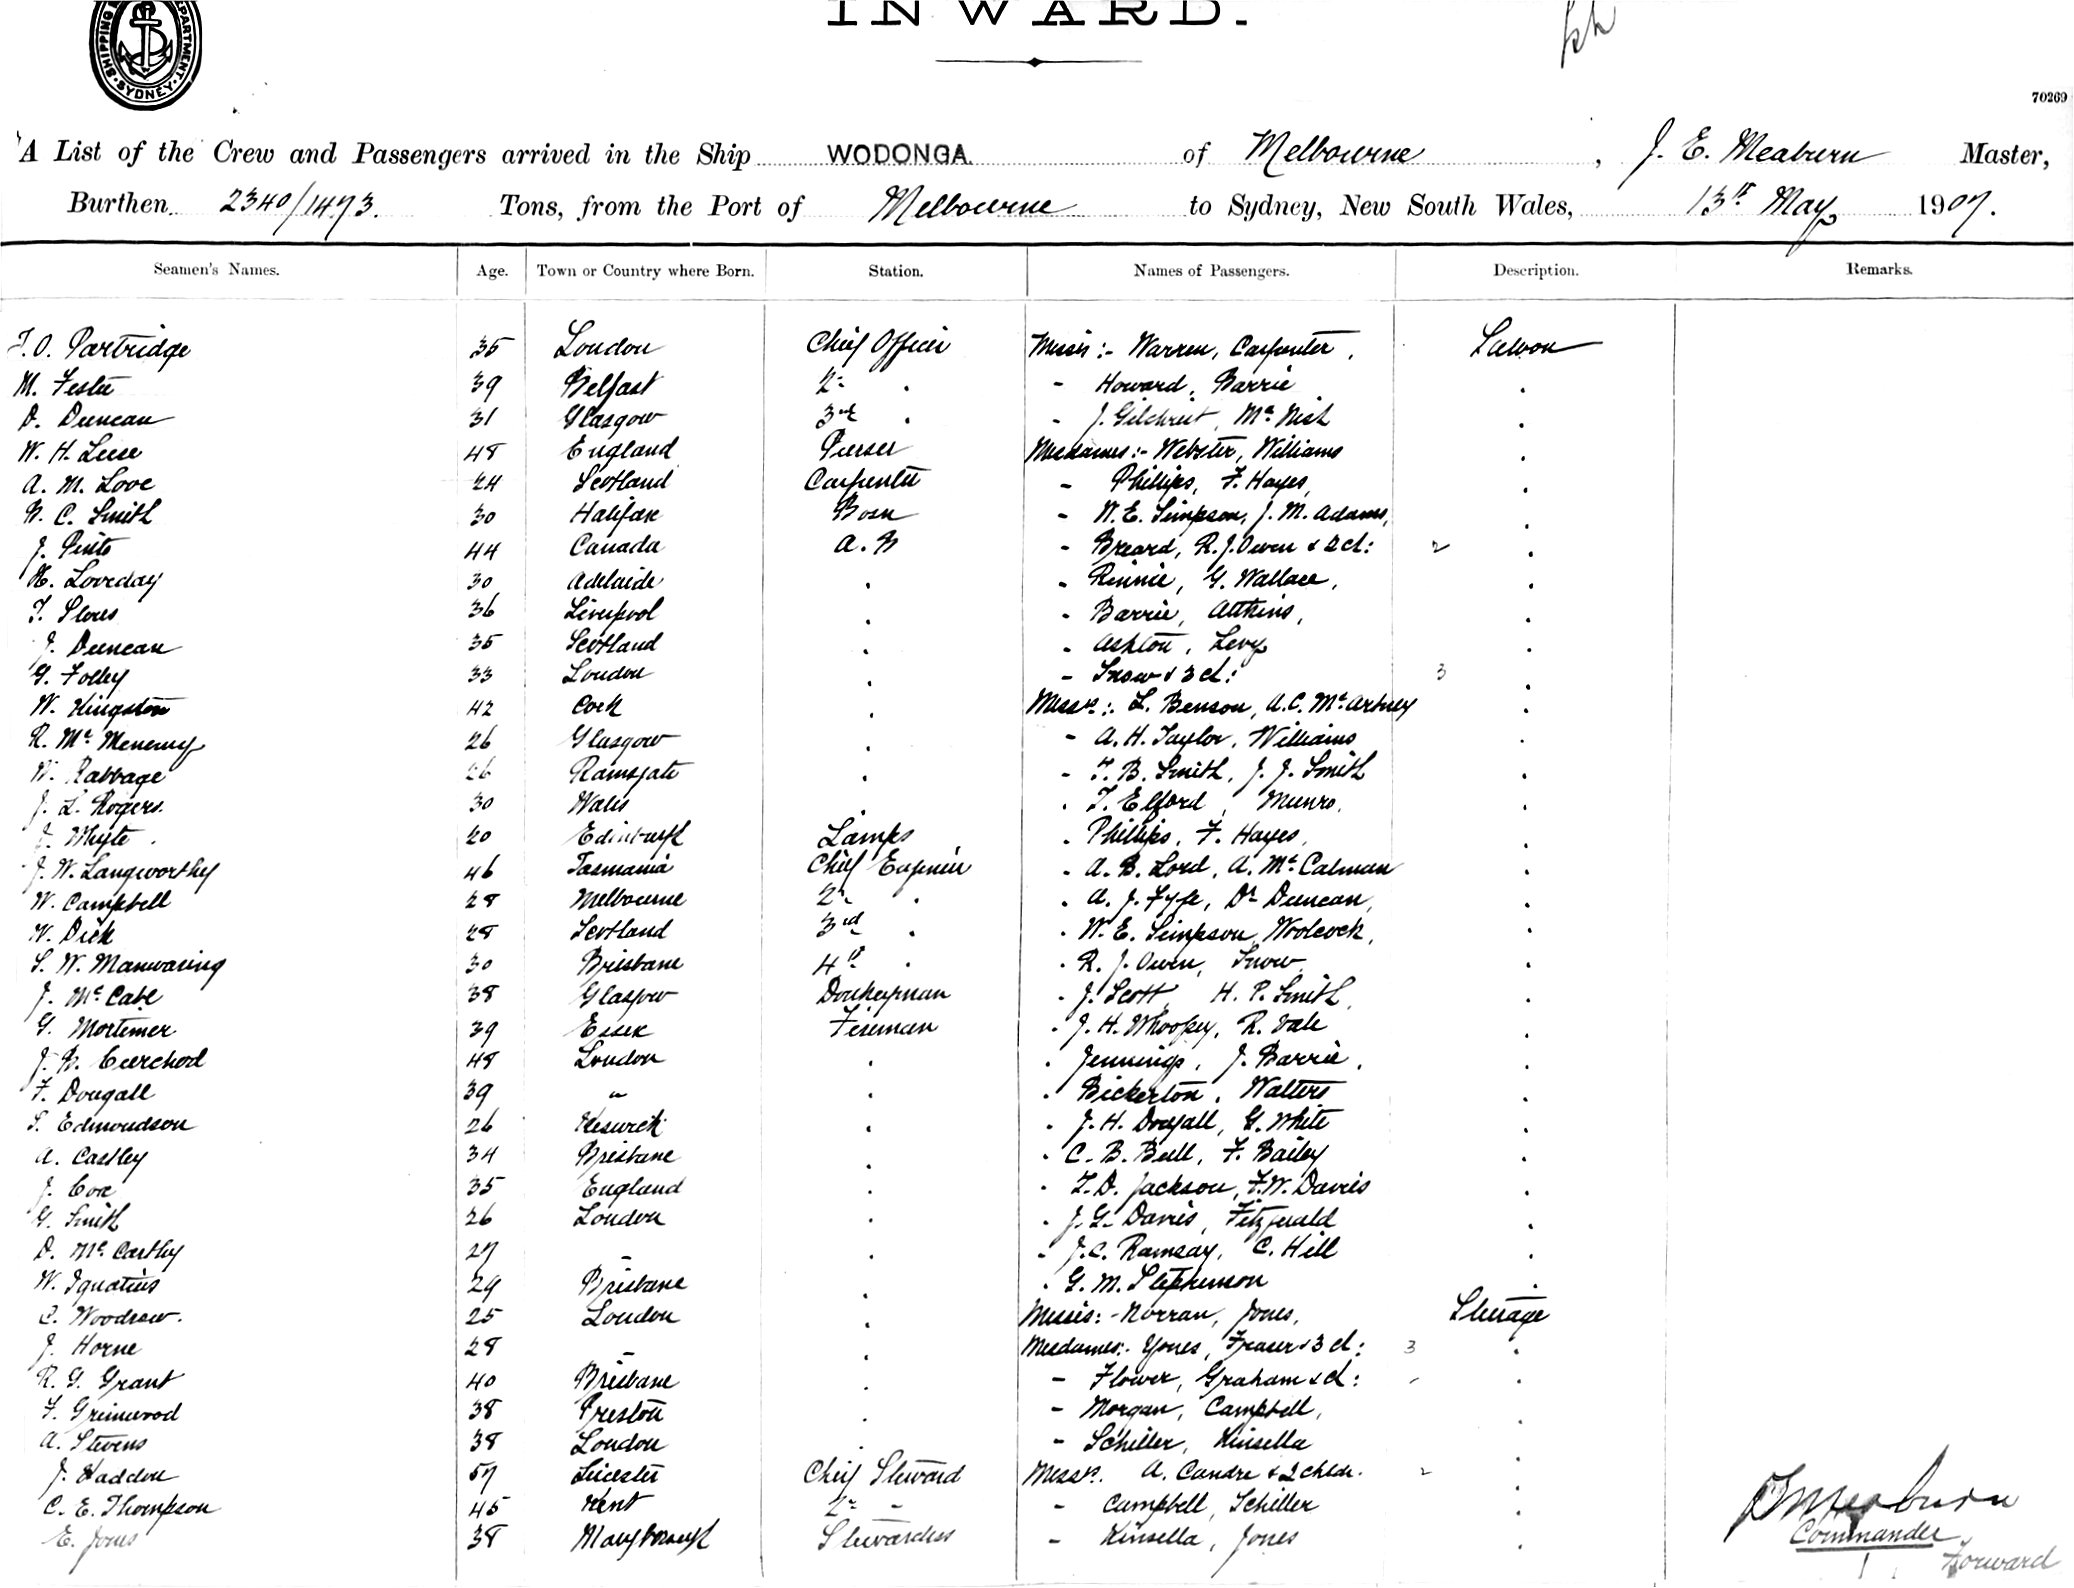 INWARD.
SHIPPING DEPARTMENT SYDNEY
70269
A List of the Crew and Passengers arrived in the Ship WODONGA of Melbourne, J. E. Meaburn Master,
Burthen 2340/1473. Tons, from the Port of Melbourne to Sydney, New South Wales, 13th May 1907.
Seamen's Names. Age. Town or Country where Born. Station. Names of Passengers. Description. Remarks.
T. O. Partridge 35 London Chief Officer Misses :- Warren, Carpenter, Saloon
M. 39 Belfast 2nd " - Howard, Barrie "
D. Duncan 31 Glasgow 3rd " - J. Gilchrist, McNish "
W. H. Leese 48 England Purser Mesdames :- Webster, Williams "
A. M. Love 24 Scotland Carpenter - Phillips, F. Hayes, "
B. C. Smith 30 Halifax Bosn - W. E. Simpson, J. M. Adams, "
J. 44 Canada A. B - Breard, R. J. Owen & 2 cl: 2 "
H. Loveday 30 Adelaide " - Rinnie, G. Wallace, "
T. 36 Liverpool " - Barrie, Attkins, "
J. Duncan 35 Scotland " - Ashton, Levy "
G. Folley 33 London " - Snow & 3 cl: 3 "
W. Kingston 42 Cork " Messrs :. L. Benson, A. C. McArtney "
R. McMenemy 26 Glasgow " - A. H. Taylor, Williams "
W. Rabbage 26 Ramsgate " - F. B. Smith, J. J. Smith "
J. L. Rogers. 30 Wales " " T. Elford, Munro, "
J. Whyte. 20 Edinburgh Lamps " Phillips, F. Hayes, "
J. W. Langworthy 46 Tasmania Chief Engineer " A. B. Lord, A. McCalman "
W. Campbell 28 Melbourne 2nd " " A. J. Fyfe, Dr Duncan, "
W. Dick 28 Scotland 3rd " " W. E. Simpson, Woolcock, "
S. W. Manwaring 30 Brisbane 4th " " R. J. Owen, Snow "
J. McCabe 38 Glasgow Donkeyman " J. Scott, H. P. Smith, "
G. Mortimer 39 Essex Fireman " J. H. Whoopey, R. Vale "
J. B. Cuerchod 48 London " " Jennings, J. Barrie, "
F. Dougall 39 " " " Bickerton, Walters "
S. Edmondson 26 Keswick " " J. H. Dougall, G. White "
A. Castley 34 Brisbane " " C. B. Bull, F. Bailey "
J. Cox 35 England " " T. D. Jackson, F. W. Davies "
G. Smith 26 London " " J. G. Davies, Fitzgerald "
D. McCarthy 27 " " - J. C. Ramsay, C. Hill "
W. Ignatius 29 Brisbane " " G. M. Stephenson "
C. Woodrow. 25 London " Misses :- Norran, Jones, Steerage
J. Horne 28 " " Mesdames :- Jones, Fraser & 3 cl: 3 "
R. G. Grant 40 Brisbane " - Flower, Graham & cl: "
F. Grimwood 38 Preston " - Morgan, Campbell, "
A. Stevens 38 London " - Schiller, Kinsella "
J. Haddon 57 Leicester Chief Steward Messrs. A. Candre & 2 chldr. 2 "
C. E. Thompson 45 Kent 2nd " - Campbell, Schiller "
E. Jones 38 Maryborough Stewardess - Kinsella, Jones "
J E Meaburn
Commander
Forward